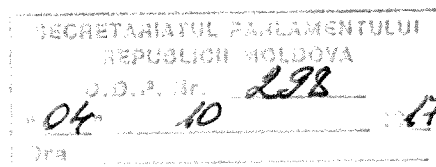 SECRETARIATUL PARLAMENTULUI
REPUBLICII MOLDOVA
D.D.P. Nr. 298
"04" 10 17
Ora